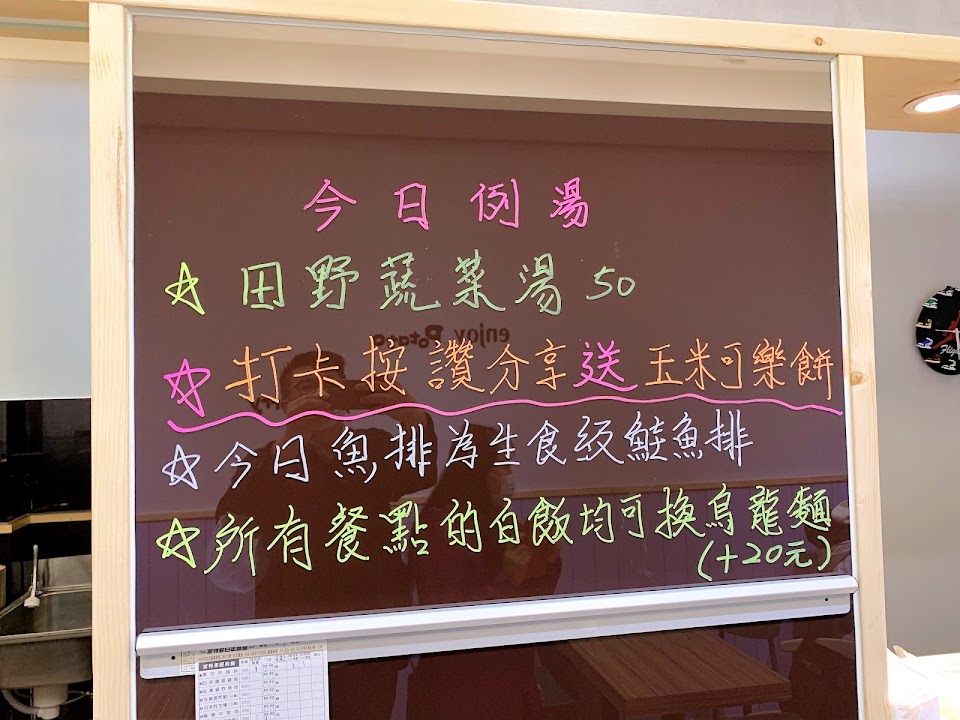 今日例湯
☆田野蔬菜湯 50
☆打卡按讚分享送玉米可樂餅
☆今日魚排為生食級鮭魚排
☆所有餐點的白飯均可換烏龍麵
(+20元)
enjoy Potato